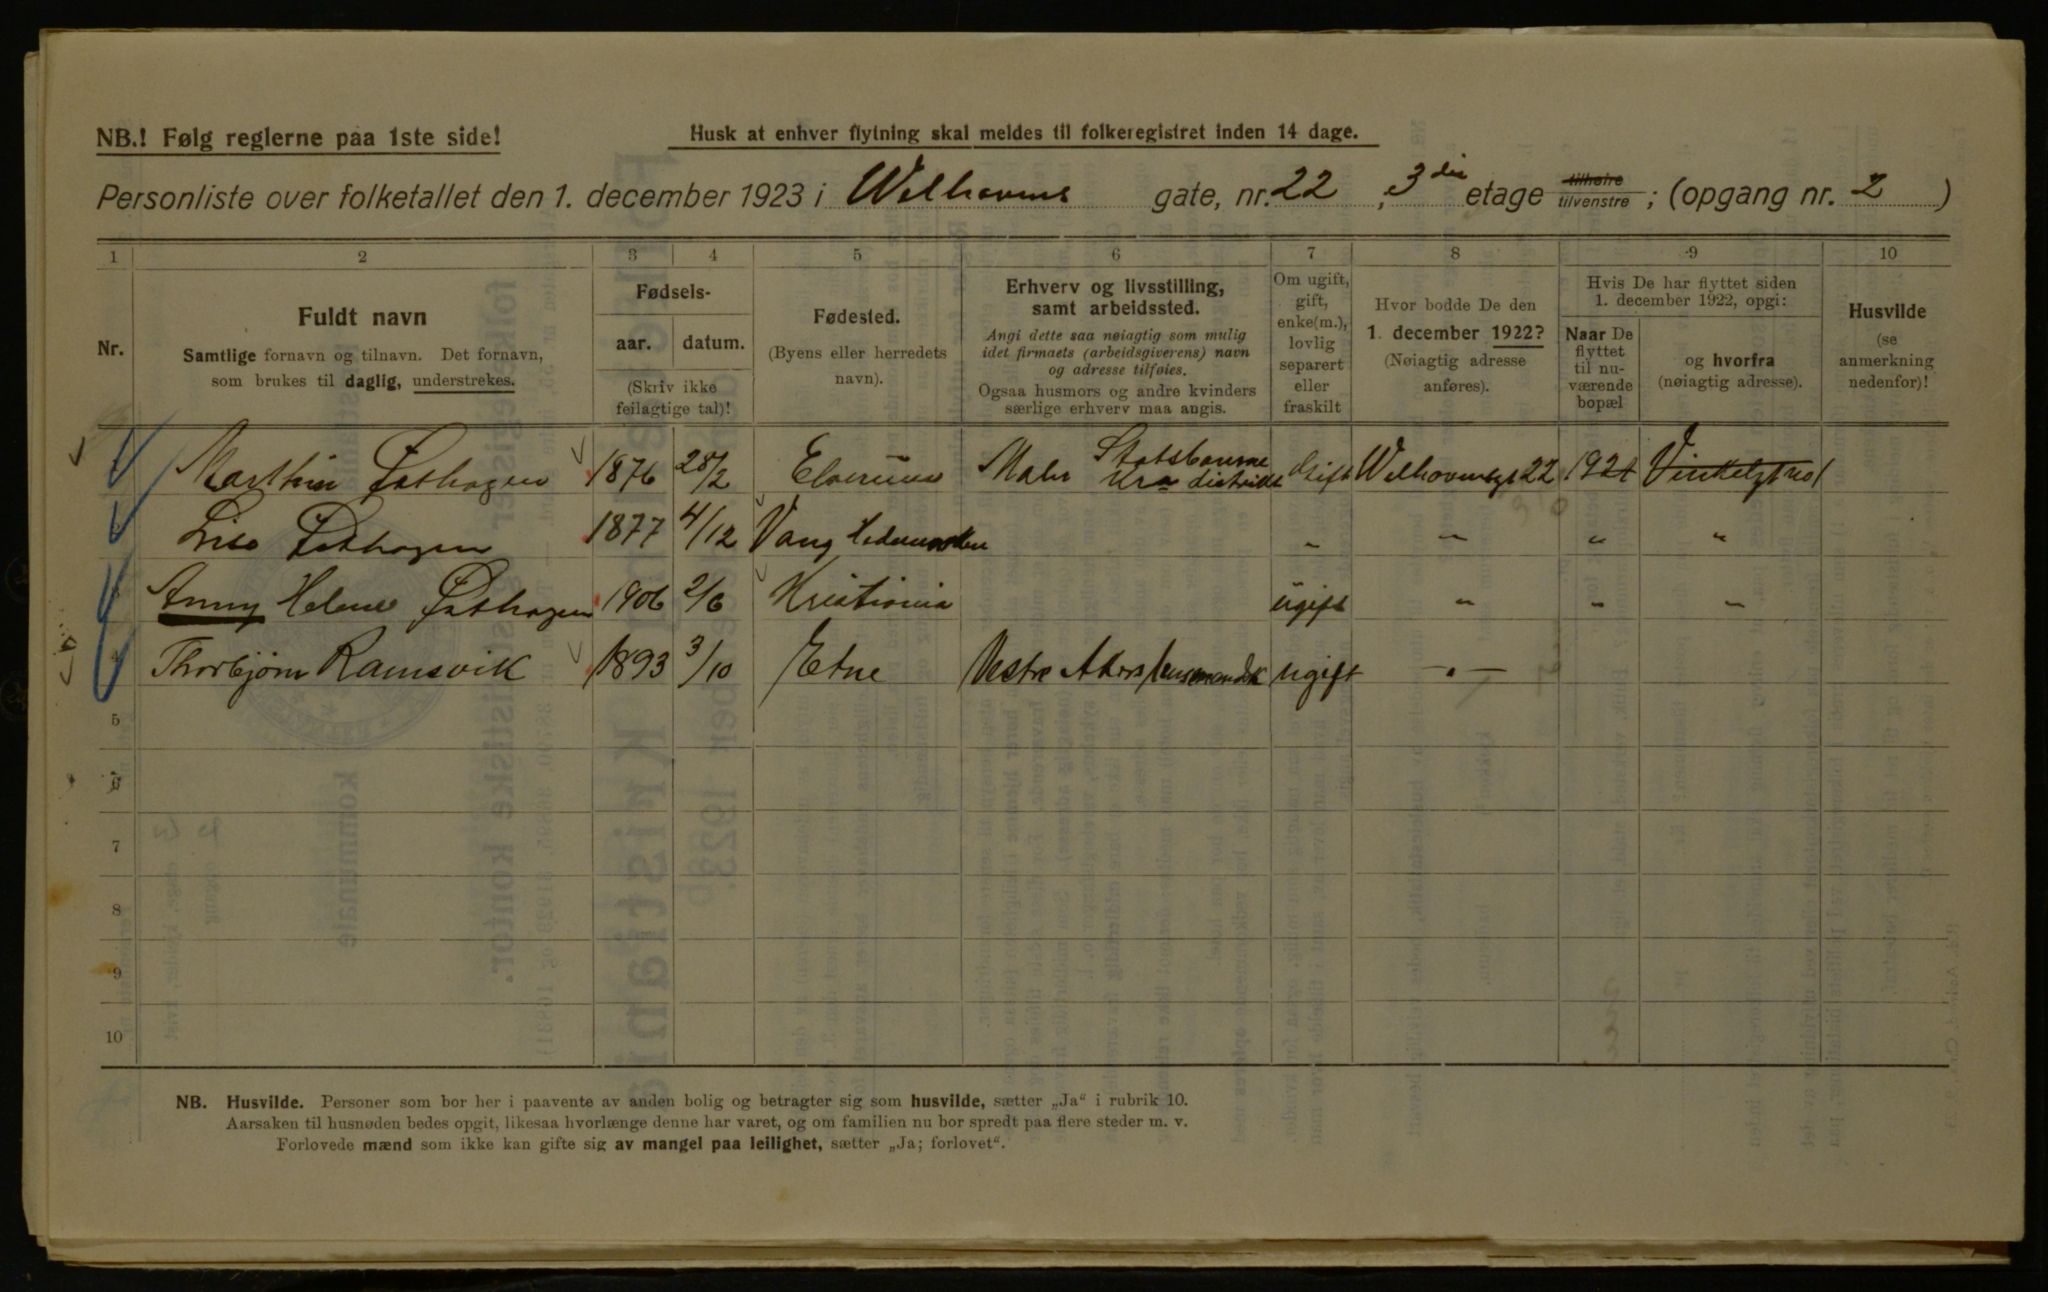 NB.! Følg reglerne paa 1ste side!
Husk at enhver flytning skal meldes til folkeregistret inden 14 dage.
Personliste over folketallet den 1. december 1923 i Welhavens gate, nr. 22, 3die etage tilhøire tilvenstre; (opgang nr. 2)
1 2 3 4 5 6 7 8 9 10
Nr.
Fuldt navn
Samtlige fornavn og tilnavn. Det fornavn,
som brukes til daglig, understrekes.
Fødsels-
aar. datum.
(Skriv ikke
feilagtige tal)!
Fødested.
(Byens eller herredets
navn).
Erhverv og livsstilling,
samt arbeidssted.
Angi dette saa nøiagtig som mulig
idet firmaets (arbeidsgiverens) navn
og adresse tilføies.
Ogsaa husmors og andre kvinders
særlige erhverv maa angis.
Om ugift,
gift,
enke(m.),
lovlig
separert
eller
fraskilt
Hvor bodde De den
1. december 1922?
(Nøiagtig adresse
anføres).
Hvis De har flyttet siden
1. december 1922, opgi:
Naar De
flyttet
til nu-
værende
bopæl
og hvorfra
(nøiagtig adresse).
Husvilde
(se
anmerkning
nedenfor)!
Marthin Østhagen 1876 28/2 Elverum Maler Statsbanerne Kra distrikt Gift Welhavensgt 22 1921 Vinkelgt no 1
Lise Østhagen 1877 4/12 Vang Hedemarken „ „ „ „
Anny Helene Østhagen 1906 2/6 Kristiania ugift „ „ „
4 Thorbjørn Ramsvik 1893 3/10 Etne Vestre Akers lensmandsk ugift — „ —
5
6
7
8
9
10
NB. Husvilde. Personer som bor her i paavente av anden bolig og betragter sig som husvilde, sætter „Ja“ i rubrik 10.
Aarsaken til husnøden bedes opgit, likesaa hvorlænge denne har varet, og om familien nu bor spredt paa flere steder m. v.
Forlovede mænd som ikke kan gifte sig av mangel paa leilighet, sætter „Ja; forlovet“.